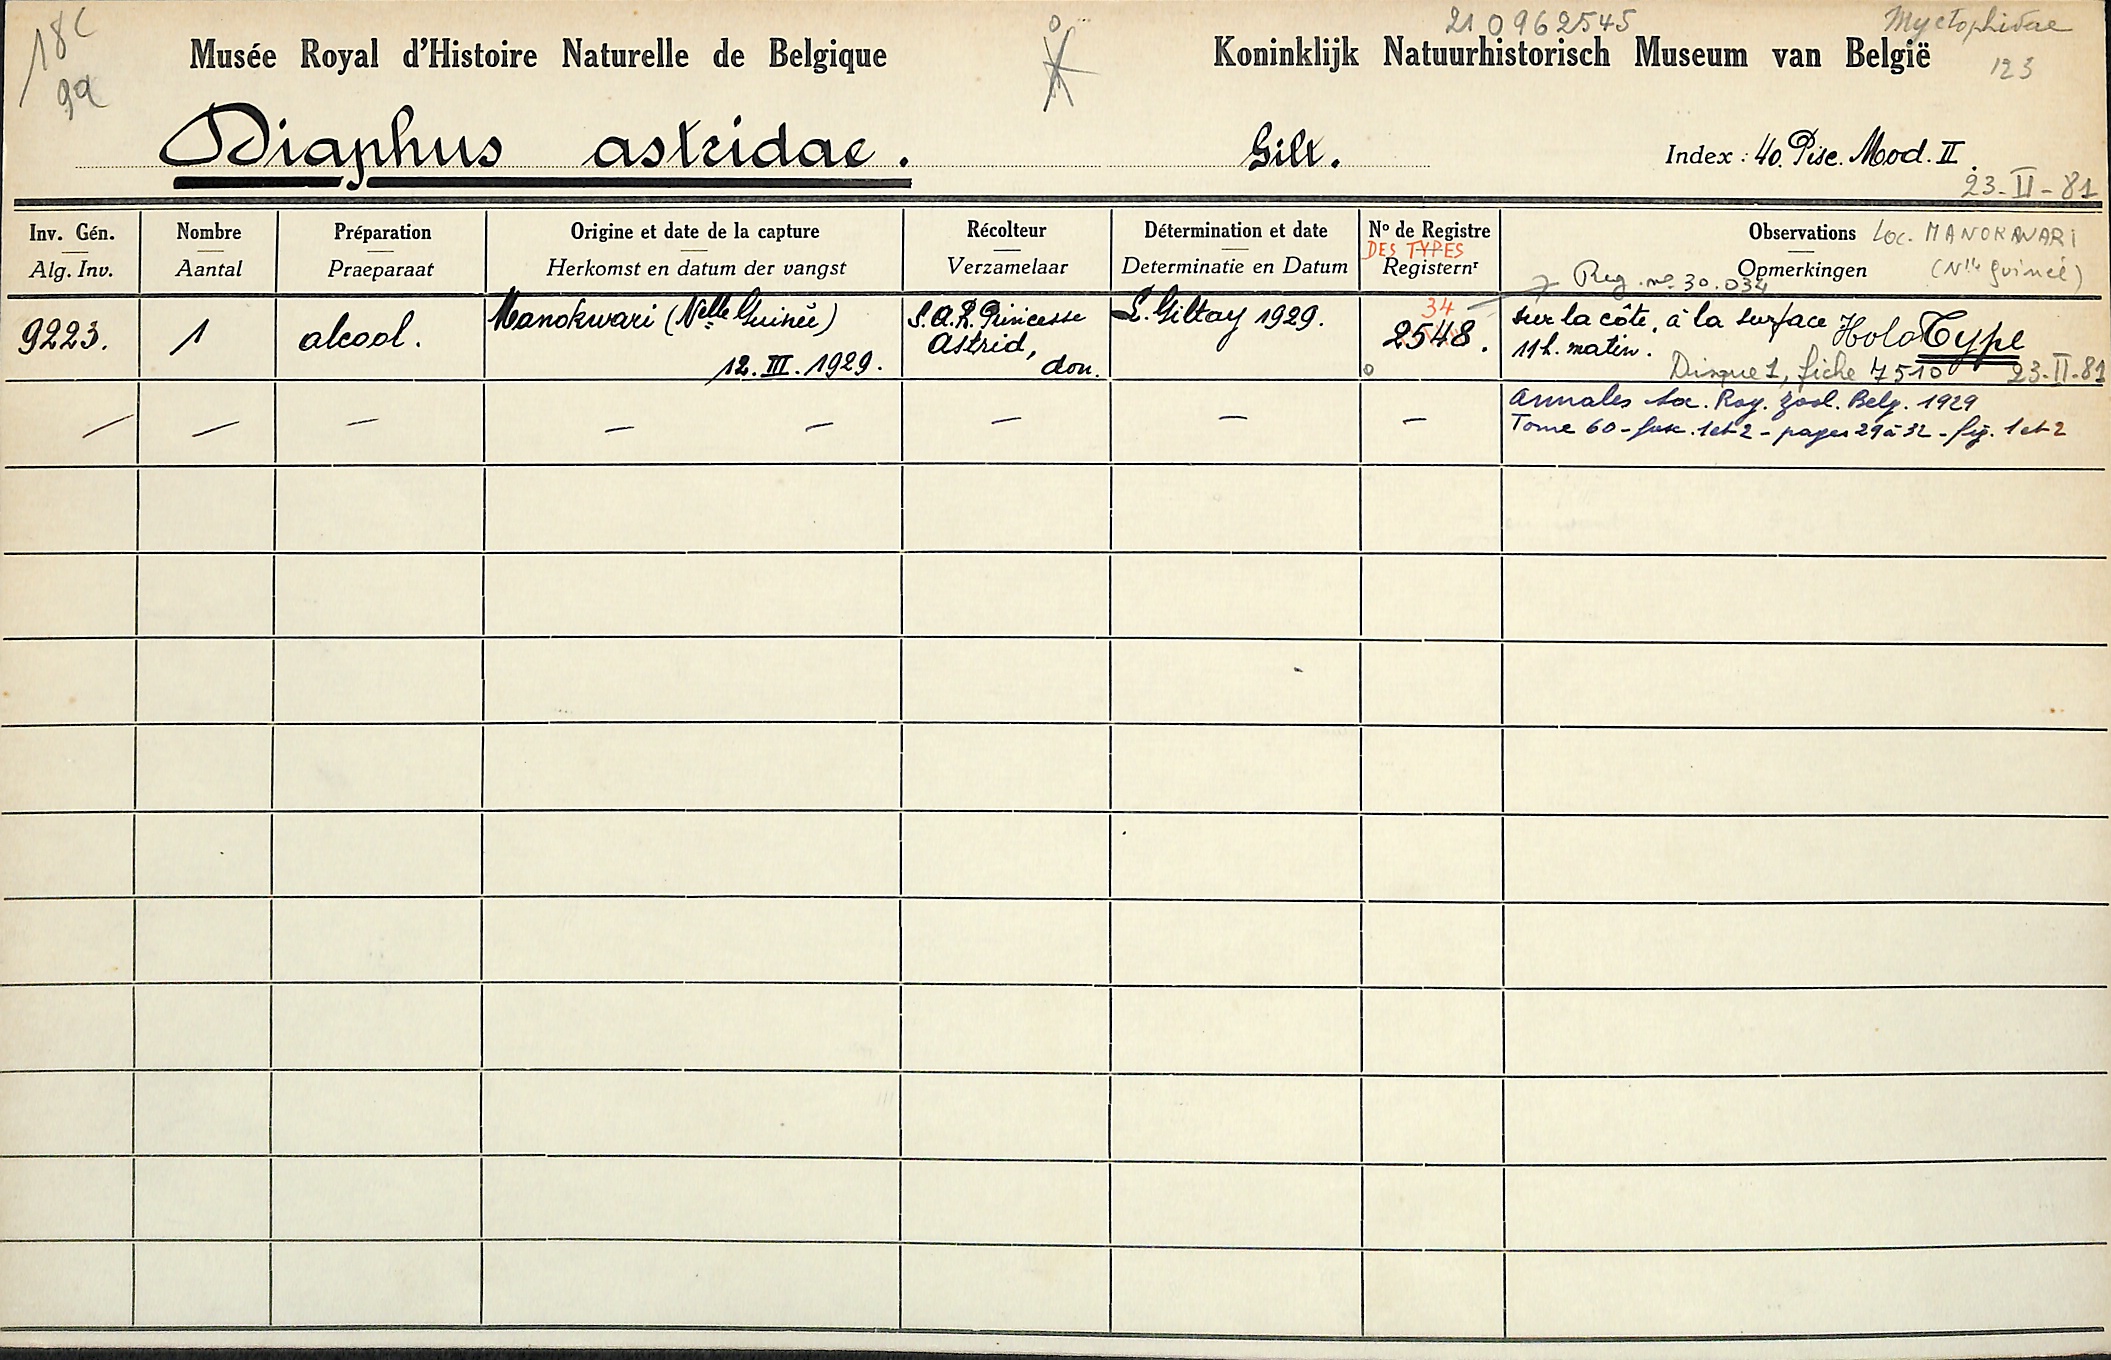 18C
9a
210962545
Myctophidae
123
Musée Royal d'Histoire Naturelle de Belgique
Koninklijk Natuurhistorisch Museum van België
Diaphus astridae.
Gilt.
Index : 40. Pisc. Mod. II.
23-II-81
Inv. Gén.
Alg. Inv.
Nombre
Aantal
Préparation
Praeparaat
Origine et date de la capture
Herkomst en datum der vangst
Récolteur
Verzamelaar
Détermination et date
Determinatie en Datum
No de Registre
DES TYPES
Registernr
Observations
Opmerkingen
Loc. MANOKWARI
(Nlle guinée)
Reg. no. 30.034
9223.
1
alcool.
Manokwari (Nelle Guinée)
12. III. 1929.
S.A.R. Princesse
Astrid,
don.
L. Giltay 1929.
34
2548.
sur la côte, à la surface
11h. matin.
HoloType
Disque 1, fiche 7510
23-II-81
Annales Soc. Roy. Zool. Belg. 1929
Tome 60 - fasc. 1 et 2 - pages 29 à 32 - fig. 1 et 2